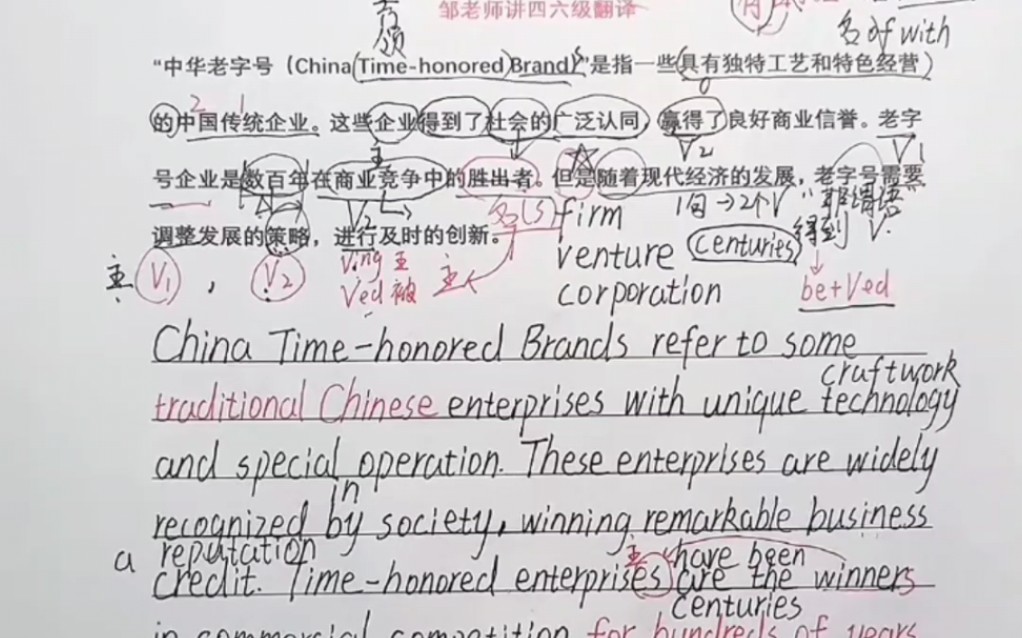 邹老师讲四六级翻译
名 of with
“中华老字号（China Time-honored Brand）s”是指一些具有独特工艺和特色经营
的中国传统企业。这些企业得到了社会的广泛认同，赢得了良好商业信誉。老字
号企业是数百年在商业竞争中的胜出者。但是随着现代经济的发展，老字号需要
调整发展的策略，进行及时的创新。
名(s) firm
1句→2个V “非谓语”
venture centuries 得到 V.
主 V1 , V2 Ving 主
Ved 被 主
corporation be+Ved
China Time-honored Brands refer to some
craftwork
traditional Chinese enterprises with unique technology
and special operation. These enterprises are widely
in
recognized by society, winning remarkable business
a reputation 主 have been
credit. Time-honored enterprises are the winners
centuries
in commercial competition for hundreds of years